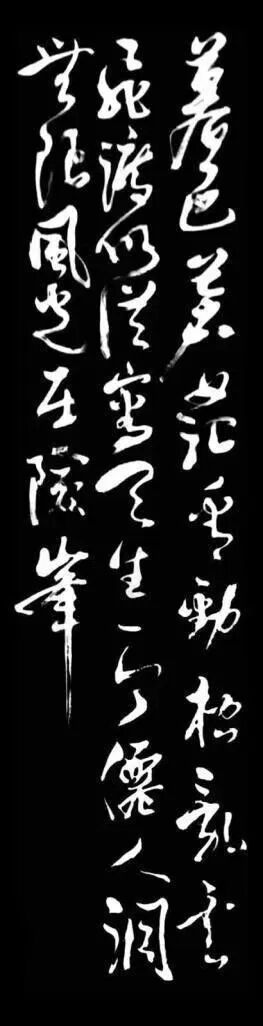 暮色蒼茫看勁松亂雲
飛渡仍從容天生一个僊人洞
無限風光在險峯